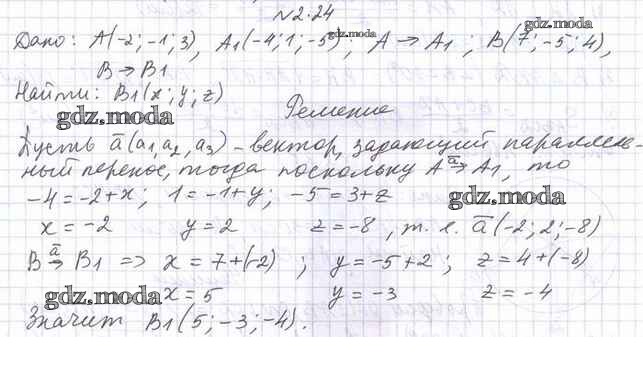 №2.24
gdz.moda
Дано: A(-2; -1; 3), A1(-4; 1; -5); A → A1; B(7; -5; 4),
gdz.moda
B → B1
Найти: B1(x; y; z)
gdz.moda
Решение
Пусть a̅(a1, a2, a3) - вектор, задающий параллель-
ный перенос, тогда поскольку A →(a̅) A1, то
-4 = -2+x; 1 = -1+y; -5 = 3+z
gdz.moda
x = -2 y = 2 z = -8, т. е. a̅(-2; 2; -8)
B →(a̅) B1 => x = 7+(-2); y = -5+2; z = 4+(-8)
gdz.moda
x = 5 y = -3 z = -4
Значит B1(5; -3; -4).